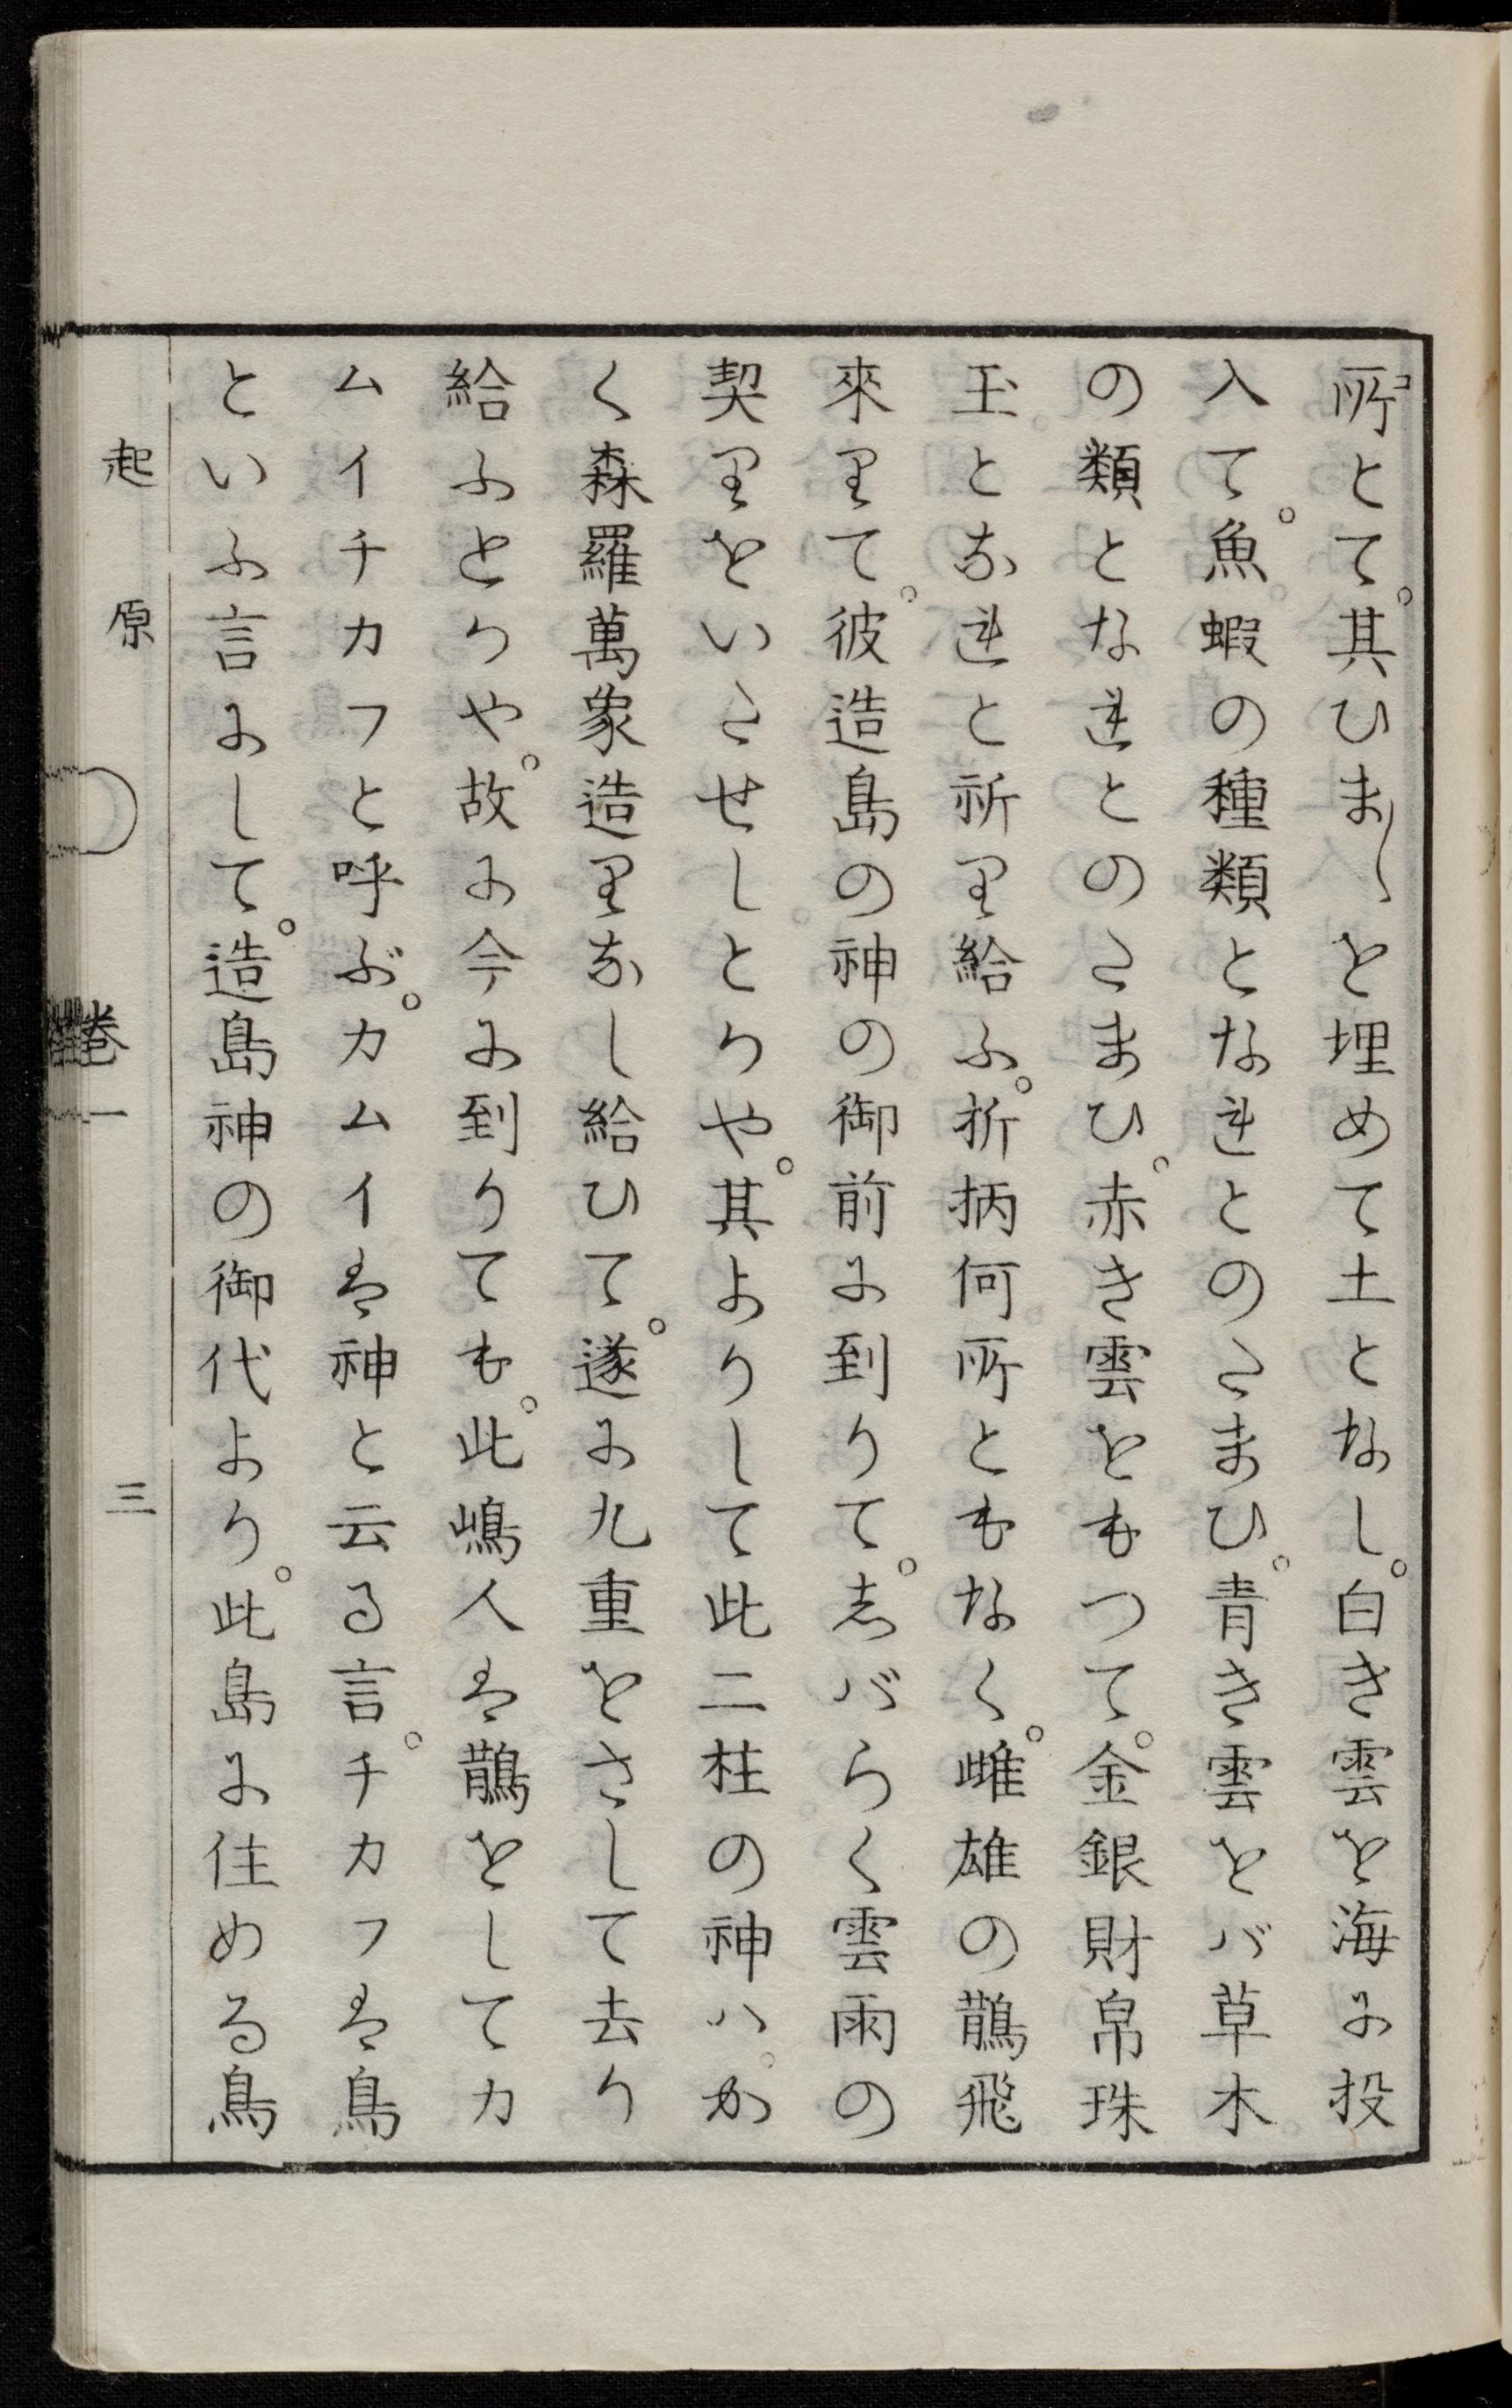 所とて。其ひま〳〵を埋めて土となし。白き雲を海に投
入て。魚蝦の種類となれとのたまひ。青き雲をバ草木
の類となれとのたまひ。赤き雲をもつて。金銀財帛珠
玉となれと祈り給ふ。折柄何所ともなく。雌雄の鶺飛
來りて。彼造島の神の御前に到りて。志バらく雲雨の
契りをいたせしとうや。其よりして此二柱の神ハ。か
く森羅萬象造りなし給ひて。遂に九重をさして去り
給ふとうや。故に今に到りても。此嶋人は鶺をしてカ
ムイチカフと呼ぶ。カムイは神と云る言。チカフは鳥
といふ言にして。造島神の御代より。此島に住める鳥
起原 卷一 三